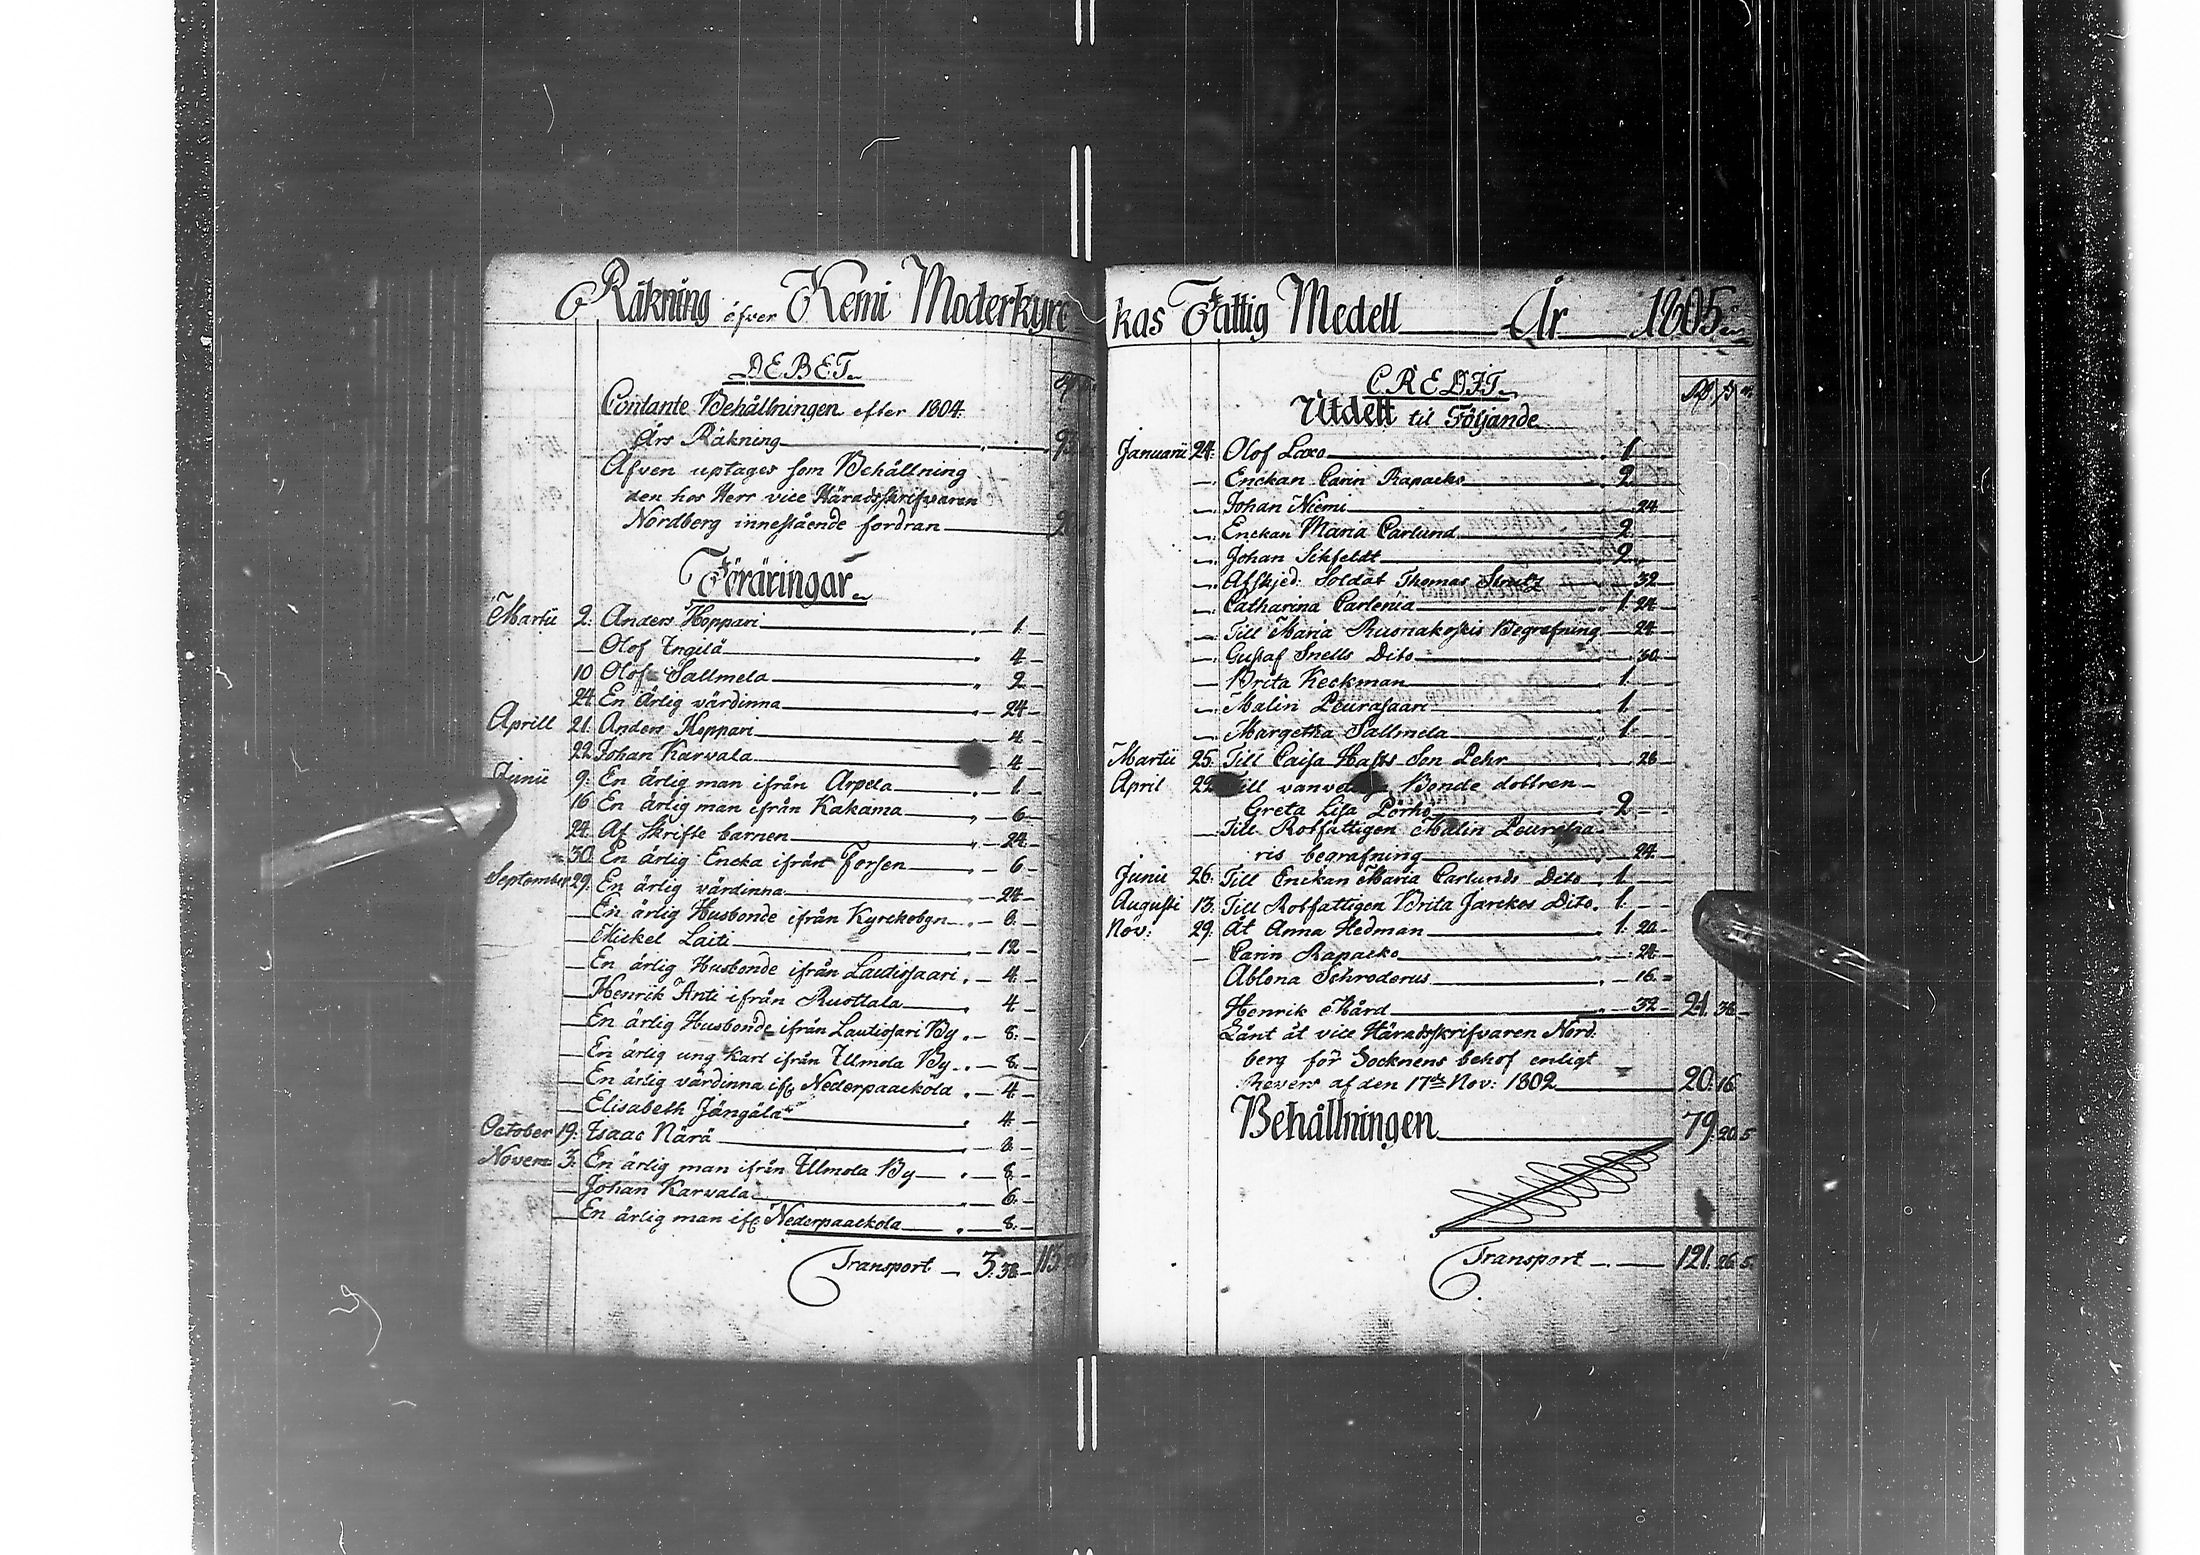 Räkning öfver Kemi Moderkyrc
DEBET.
Contante Behållningen efter 1804
Års Räkning
Äfven uptages som Behållning
den hos Herr vice Häradsskrifvaren
Nordberg innestående fordran
Föräringar
Martii 2. Anders Hoppari 1
Olof Ingilä 4
10 Olof Sallmela 2
24. En ärlig värdinna 24
Aprill 21. Anders Hoppari 4
22. Johan Karvala 4
Junii 9. En ärlig man ifrån Arpela 1
16. En ärlig man ifrån Kakama 6
24. Af Skrifte barnen 24
30. En ärlig Encka ifrån Forsen 6
September 29. En ärlig värdinna 24
En ärlig Husbonde ifrån Kyrckobyn 8
Mickel Laiti 12
En ärlig Husbonde ifrån Lautiosaari 4
Henrik Anti ifrån Ruottala 4
En ärlig Husbonde ifrån Lautiosari By 8
En ärlig ung Karl ifrån Ullmola By 8
En ärlig värdinna ifr. Nederpaackola 4
Elisabeth Jängälä 4
October 19. Isaac Närä 8
Novem 3. En ärlig man ifrån Ullmola By 8
Johan Karvala 6
En ärlig man ifr. Nederpaackola 8
Transport 3. 38 113
kas Fattig Medell År 1805
CREDIT.
Utdelt til Följande
Januarii 24. Olof Laxo 1
Enckan Carin Rapacko 2
Johan Niemi 24
Enckan Maria Carlund 2
Johan Sihfeldt 2
Afskjed. Soldat Thomas 32
Catharina Carlenia 1. 24
Till Maria Rusnakoskis Begrafning 24
Gustaf Snells Dito 30
Brita Keckman 1
Malin Leurasaari 1
Margetha Sallmela 1
Martii 25. Till Caisa Hafts Son Pehr 28
April 22. Till Bonde dottren
Greta Lisa Pörhö 2
Till Rotfattigen Malin Leurasaa
ris begrafning 24
Junii 26. Till Enckan Maria Carlunds Dito 1
Augusti 13. Till Rotfattigen Brita Jarckos Dito 1
Nov: 29. Åt Anna Hedman 1. 20
Carin Rapacko 24
Ablona Schroderus 16
Henrik Mård 32 21. 38
Lånt åt vice Häradsskrifvaren Nord
berg för Socknens behof enligt
Revers af den 17de Nov: 1802 20. 16
Behållningen 79. 20. 5
Transport 121. 26. 5